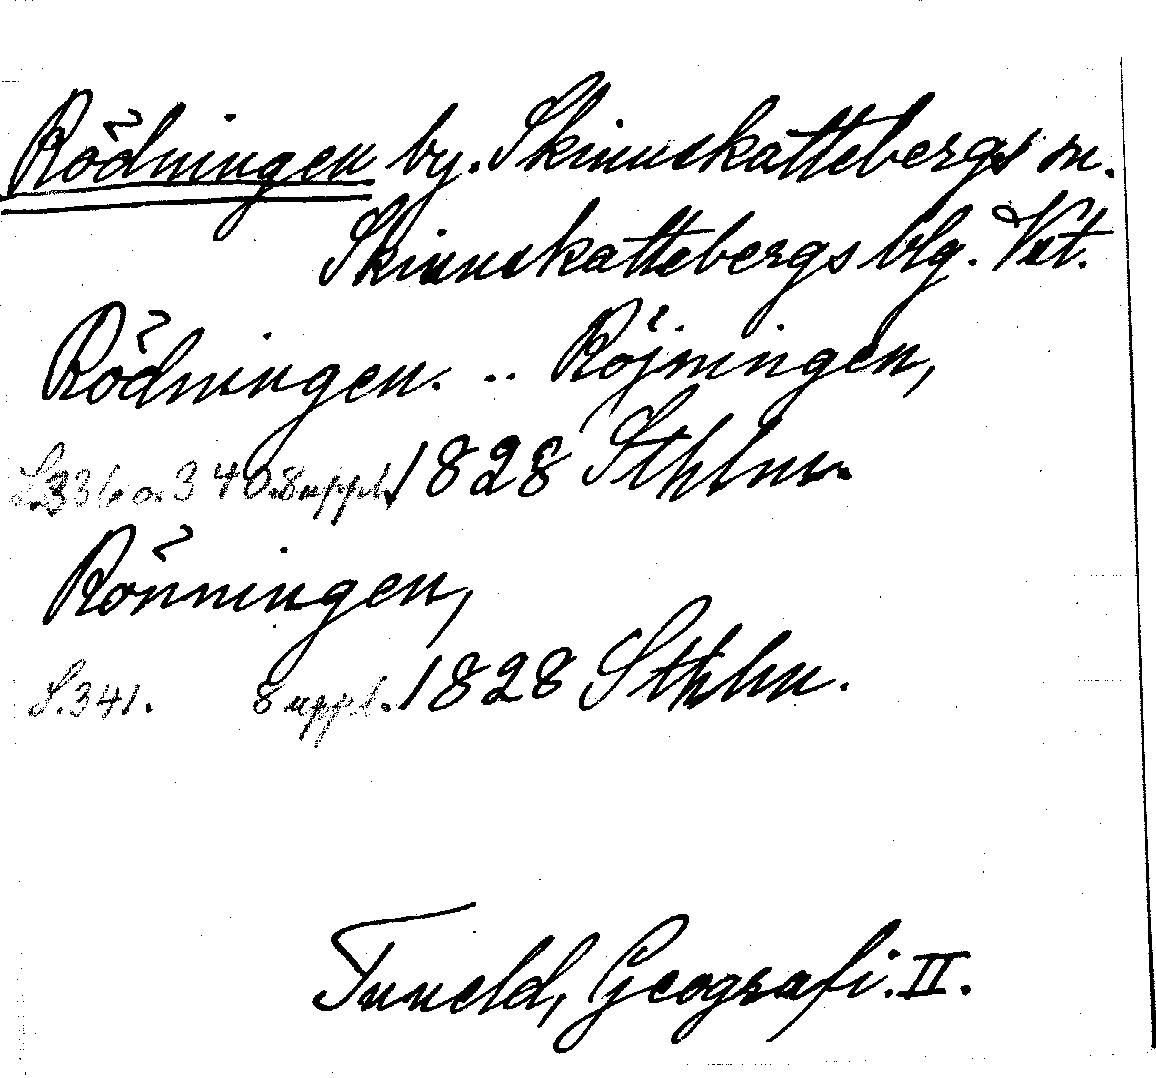 Rödningen by. Skinnskattebergs sn.
Skinnskattebergs blg. Vst.
Rödningen. .. Röjningen,
S.336 o. 340. 8 uppl. 1828 Sthlm.
Rönningen,
S.341. 8 uppl. 1828 Sthlm.
Tuneld, Geografi. II.